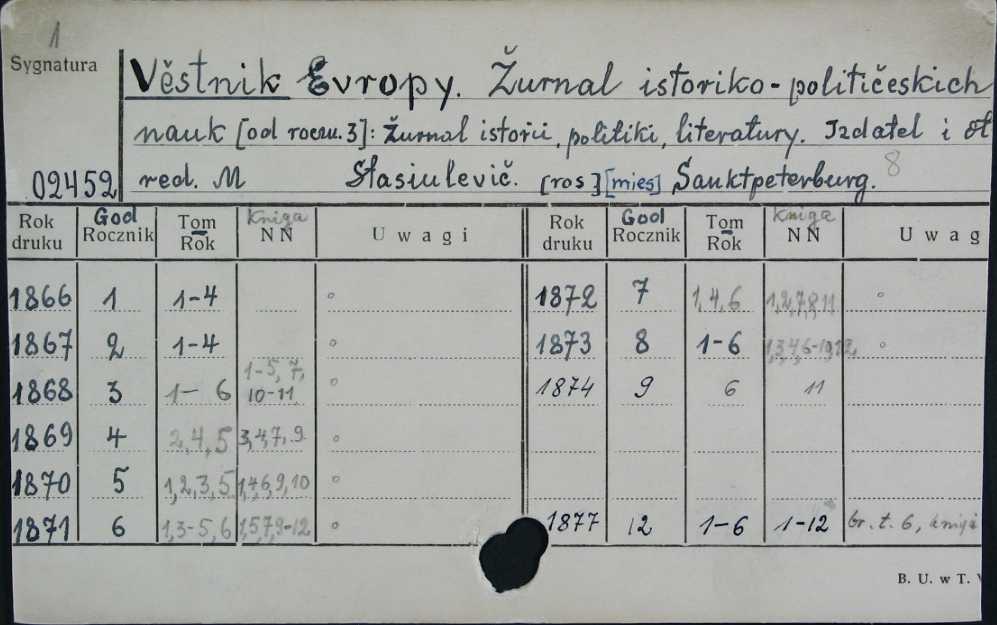 1
Sygnatura
Věstnik Evropy. Žurnal istoriko-političeskich
nauk [od roczn. 3]: žurnal istorii, politiki, literatury. Izdatel i ot
02452 red. M Stasiulevič. [ros] [mies] Sanktpeterburg. 8
Rok druku God Rocznik Tom Rok Kniga NN Uwagi Rok druku God Rocznik Tom Rok Kniga NN Uwag
1866 1 1-4 ° 1872 7 1,4,6 1,2,7,8,11 °
1867 2 1-4 ° 1873 8 1-6 °
1868 3 1-6 1-5, 7, 10-11 ° 1874 9 6 11
1869 4 2,4,5 3,4,7,9 °
1870 5 1,2,3,5 1,4,6,9,10 °
1871 6 1,3-5,6 1,5,7,9-12 ° 1877 12 1-6 1-12 br. t. 6, kniga
B. U. w T.